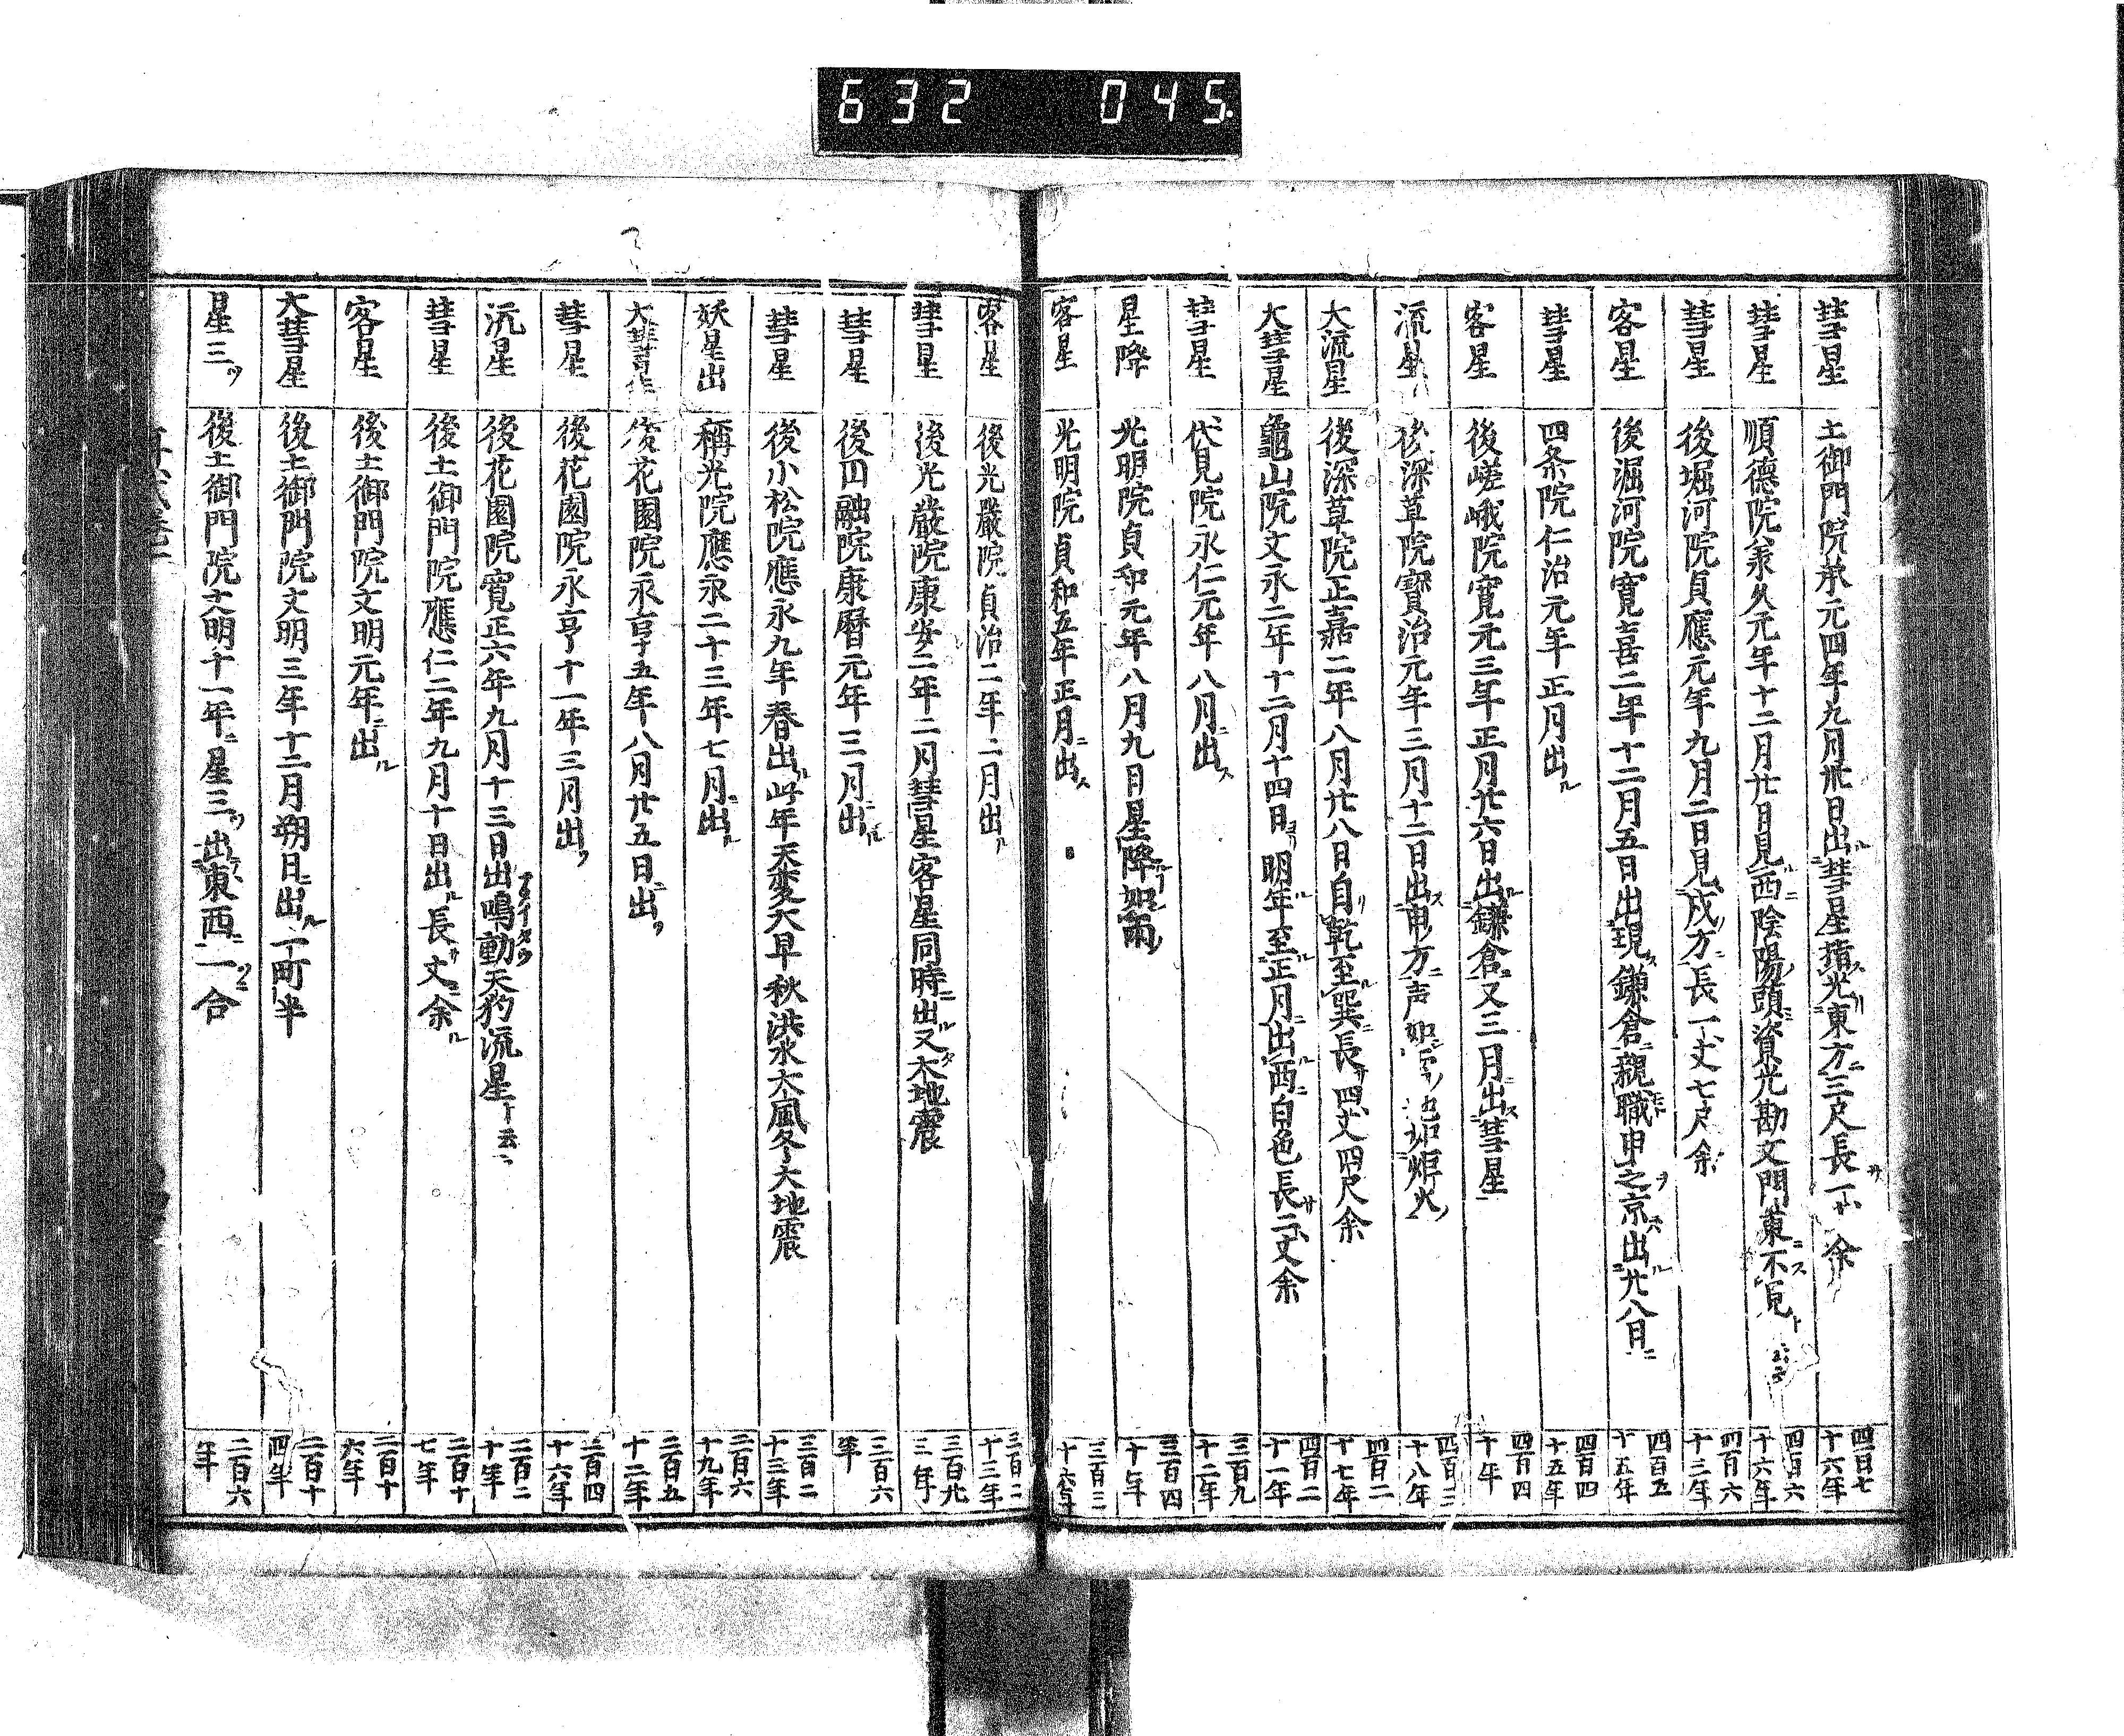 632 045.
彗星 土御門院承元四年九月卅日出彗星指光東方三尺長一 余 四百七十六年
彗星 順德院承久元年十二月廿日見西陰陽頭資光勘文門東不見ト 四百六十六年
彗星 後堀河院貞應元年九月二日見戌方長一丈七尺余 四百六十三年
客星 後堀河院寬喜二年十二月五日出現鎌倉親職申之京出廿八日 四百五十五年
彗星 四条院仁治元年正月出ル 四百四十五年
客星 後嵯峨院寬元三年正月廿六日出鎌倉又三月出彗星 四百四十年
流星 後深草院寶治元年三月十二日出申方声如 地如炬火 四百三十八年
大流星 後深草院正嘉二年八月廿八日自乾至巽長四丈四尺余 四百二十七年
大彗星 龜山院文永二年十二月十四日ヨリ明年至正月出西白色長二丈余 四百二十一年
彗星 伏見院永仁元年八月ニ出ス 三百九十二年
星降 光明院貞和元年八月九日星降如雨 三百四十年
客星 光明院貞和五年正月ニ出ス 三百三十六年
客星 後光嚴院貞治二年二月出ル 三百二十三年
彗星 後光嚴院康安二年二月彗星客星同時ニ出ル又大地震 三百九三年
彗星 後円融院康曆元年三月ニ出ル 三百六年
彗星 後小松院應永九年春出此年天変大旱秋洪水大風冬大地震 三百二十三年
妖星出 稱光院應永二十三年七月ニ出ル 二百六十九年
大彗星 後花園院永享五年八月廿五日ニ出 二百五十二年
彗星 後花園院永享十一年三月出 二百四十六年
流星 後花園院寬正六年九月十三日出鳴動天狗流星ト云 二百二十年
彗星 後土御門院應仁二年九月十日出ル長サ丈余 二百十七年
客星 後土御門院文明元年ニ出ル 二百十六年
大彗星 後土御門院文明三年十二月朔日ニ出ル一町半 二百十四年
星三ツ 後土御門院文明十一年ニ星三ツ出東西ニ一合 二百六年